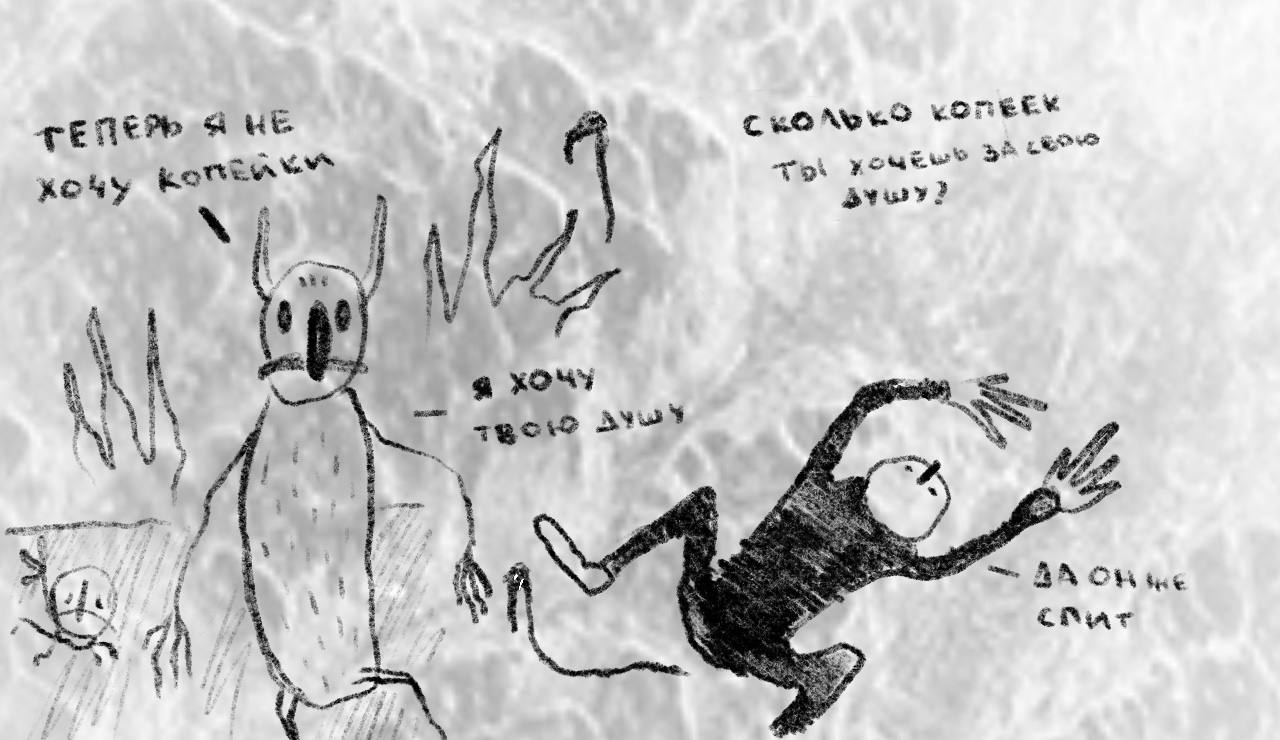 ТЕПЕРЬ Я НЕ
ХОЧУ КОПЕЙКИ
СКОЛЬКО КОПЕЕК
ТЫ ХОЧЕШЬ ЗА СВОЮ
ДУШУ?
Я ХОЧУ
ТВОЮ ДУШУ
ДА ОН ЖЕ
СПИТ